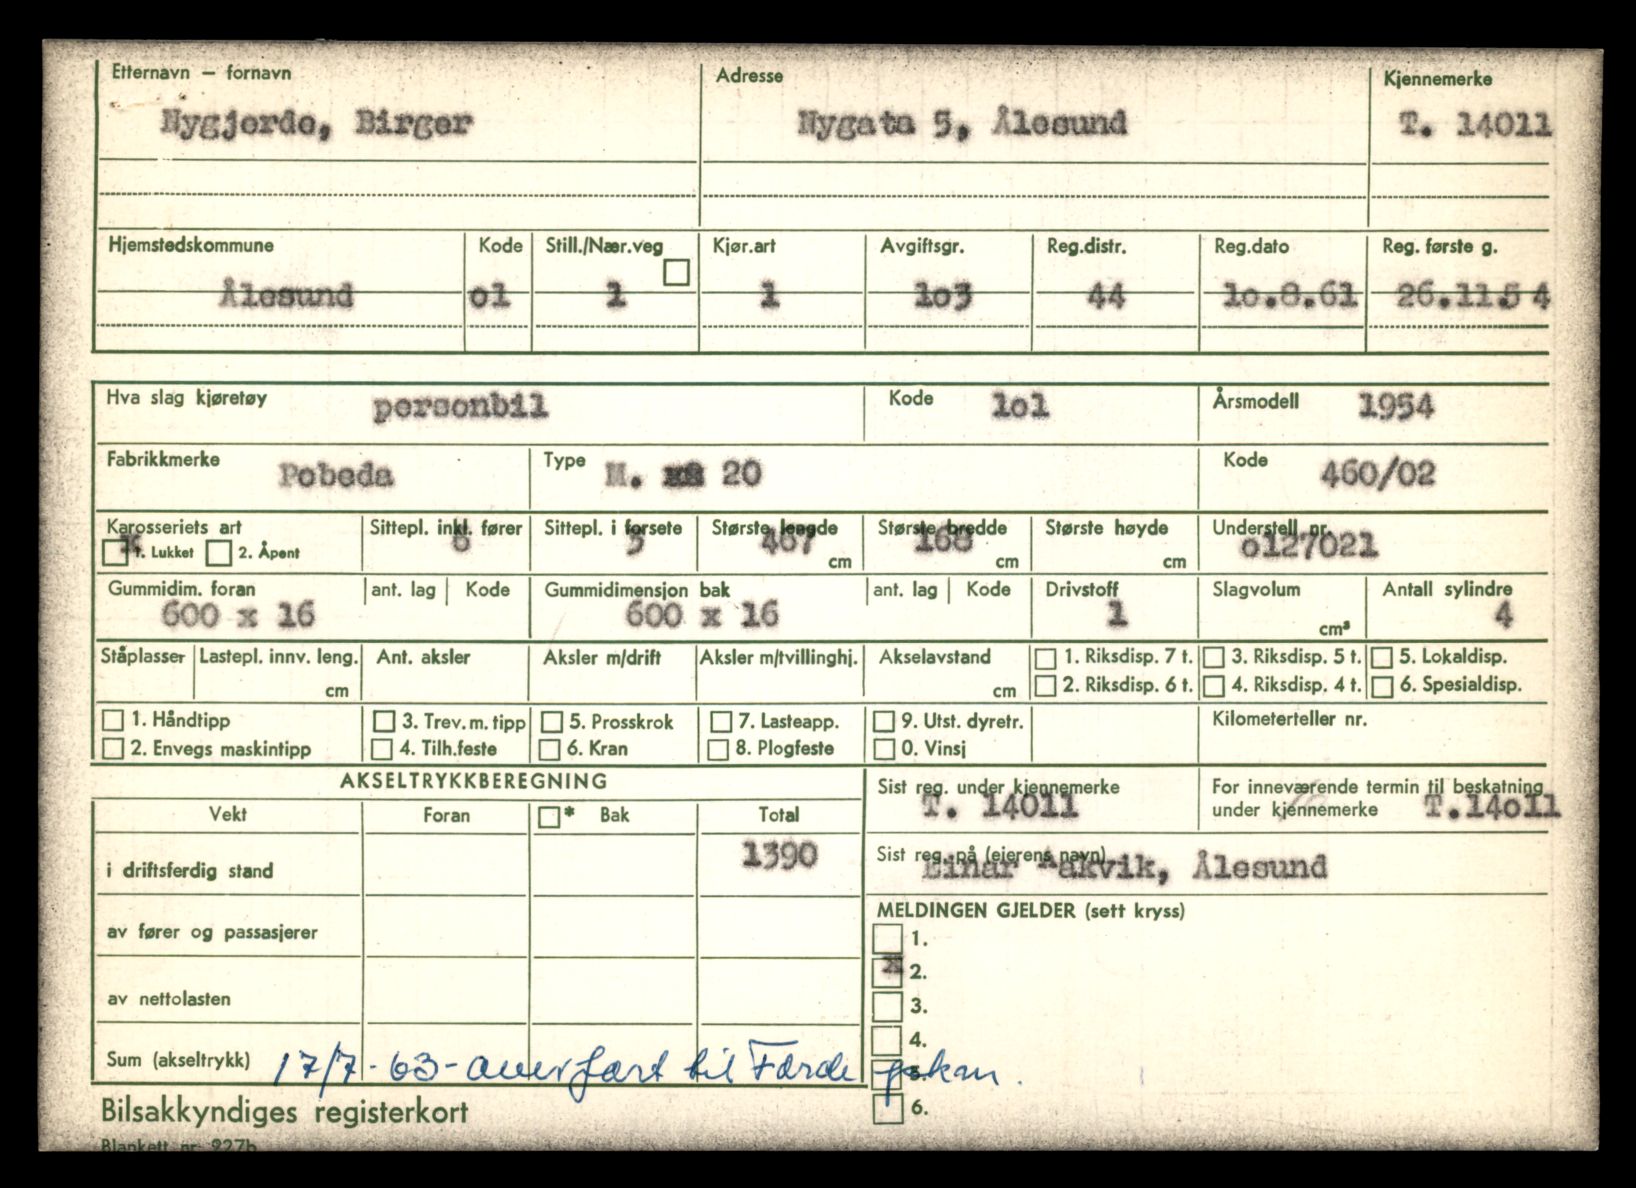 Etternavn — fornavn Adresse Kjennemerke
Nygjerde, Birger Nygata 5, Ålesund T. 14011
Hjemstedskommune Kode Still./Nær.veg Kjør.art Avgiftsgr. Reg.distr. Reg.dato Reg. første g.
Ålesund o1 1 1 1o3 44 1o.8.61 26.11.54
Hva slag kjøretøy personbil Kode 1o1 Årsmodell 1954
Fabrikkmerke Pobeda Type M. 20 Kode 460/02
Karosseriets art Sittepl. inkl. fører Sittepl. i forsete Største lengde Største bredde Største høyde Understell nr.
x 1. Lukket 2. Åpent 3 467 cm 168 cm cm o127021
Gummidim. foran ant. lag Kode Gummidimensjon bak ant. lag Kode Drivstoff Slagvolum Antall sylindre
600 x 16 600 x 16 1 cm³ 4
Ståplasser Lastepl. innv. leng. Ant. aksler Aksler m/drift Aksler m/tvillinghj. Akselavstand 1. Riksdisp. 7 t. 3. Riksdisp. 5 t. 5. Lokaldisp.
cm cm 2. Riksdisp. 6 t. 4. Riksdisp. 4 t. 6. Spesialdisp.
1. Håndtipp 3. Trev. m. tipp 5. Prosskrok 7. Lasteapp. 9. Utst. dyretr. Kilometerteller nr.
2. Envegs maskintipp 4. Tilh.feste 6. Kran 8. Plogfeste 0. Vinsj
AKSELTRYKKBEREGNING Sist reg. under kjennemerke For inneværende termin til beskatning
T. 14011 under kjennemerke T.14o11
Vekt Foran * Bak Total
i driftsferdig stand 1390 Sist reg. på (eierens navn)
Einar Aakvik, Ålesund
MELDINGEN GJELDER (sett kryss)
av fører og passasjerer 1.
x 2.
av nettolasten 3.
4.
Sum (akseltrykk) 17/7-63-overført til Førde 5.
6.
Bilsakkyndiges registerkort
Blankett nr. 227b